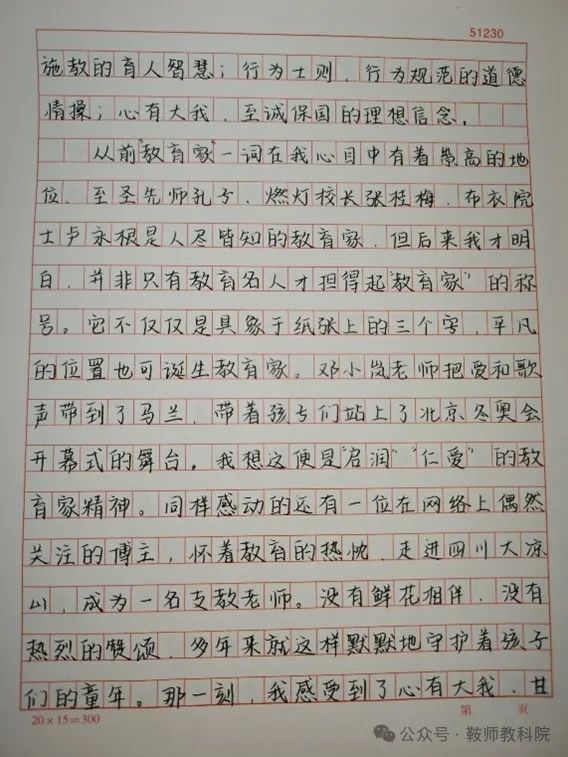 51230
施教的育人智慧；行为士则，行为规范的道德
情操；心有大我，至诚保国的理想信念。
从前“教育家”一词在我心目中有着崇高的地
位，至圣先师孔子，燃灯校长张桂梅，布衣院
士卢永根是人尽皆知的教育家，但后来我才明
白，并非只有教育名人才担得起“教育家”的称
号。它不仅仅是具象于纸张上的三个字，平凡
的位置也可诞生教育家。邓小岚老师把爱和歌
声带到了马兰，带着孩子们站上了北京冬奥会
开幕式的舞台。我想这便是“启润”“仁爱”的教
育家精神。同样感动的还有一位在网络上偶然
关注的博主，怀着教育的热忱，走进四川大凉
山，成为一名支教老师。没有鲜花相伴，没有
热烈的赞颂，多年来就这样默默地守护着孩子
们的童年。那一刻，我感受到了心有大我，甘
20×15=300
第 页
公众号·鞍师教科院